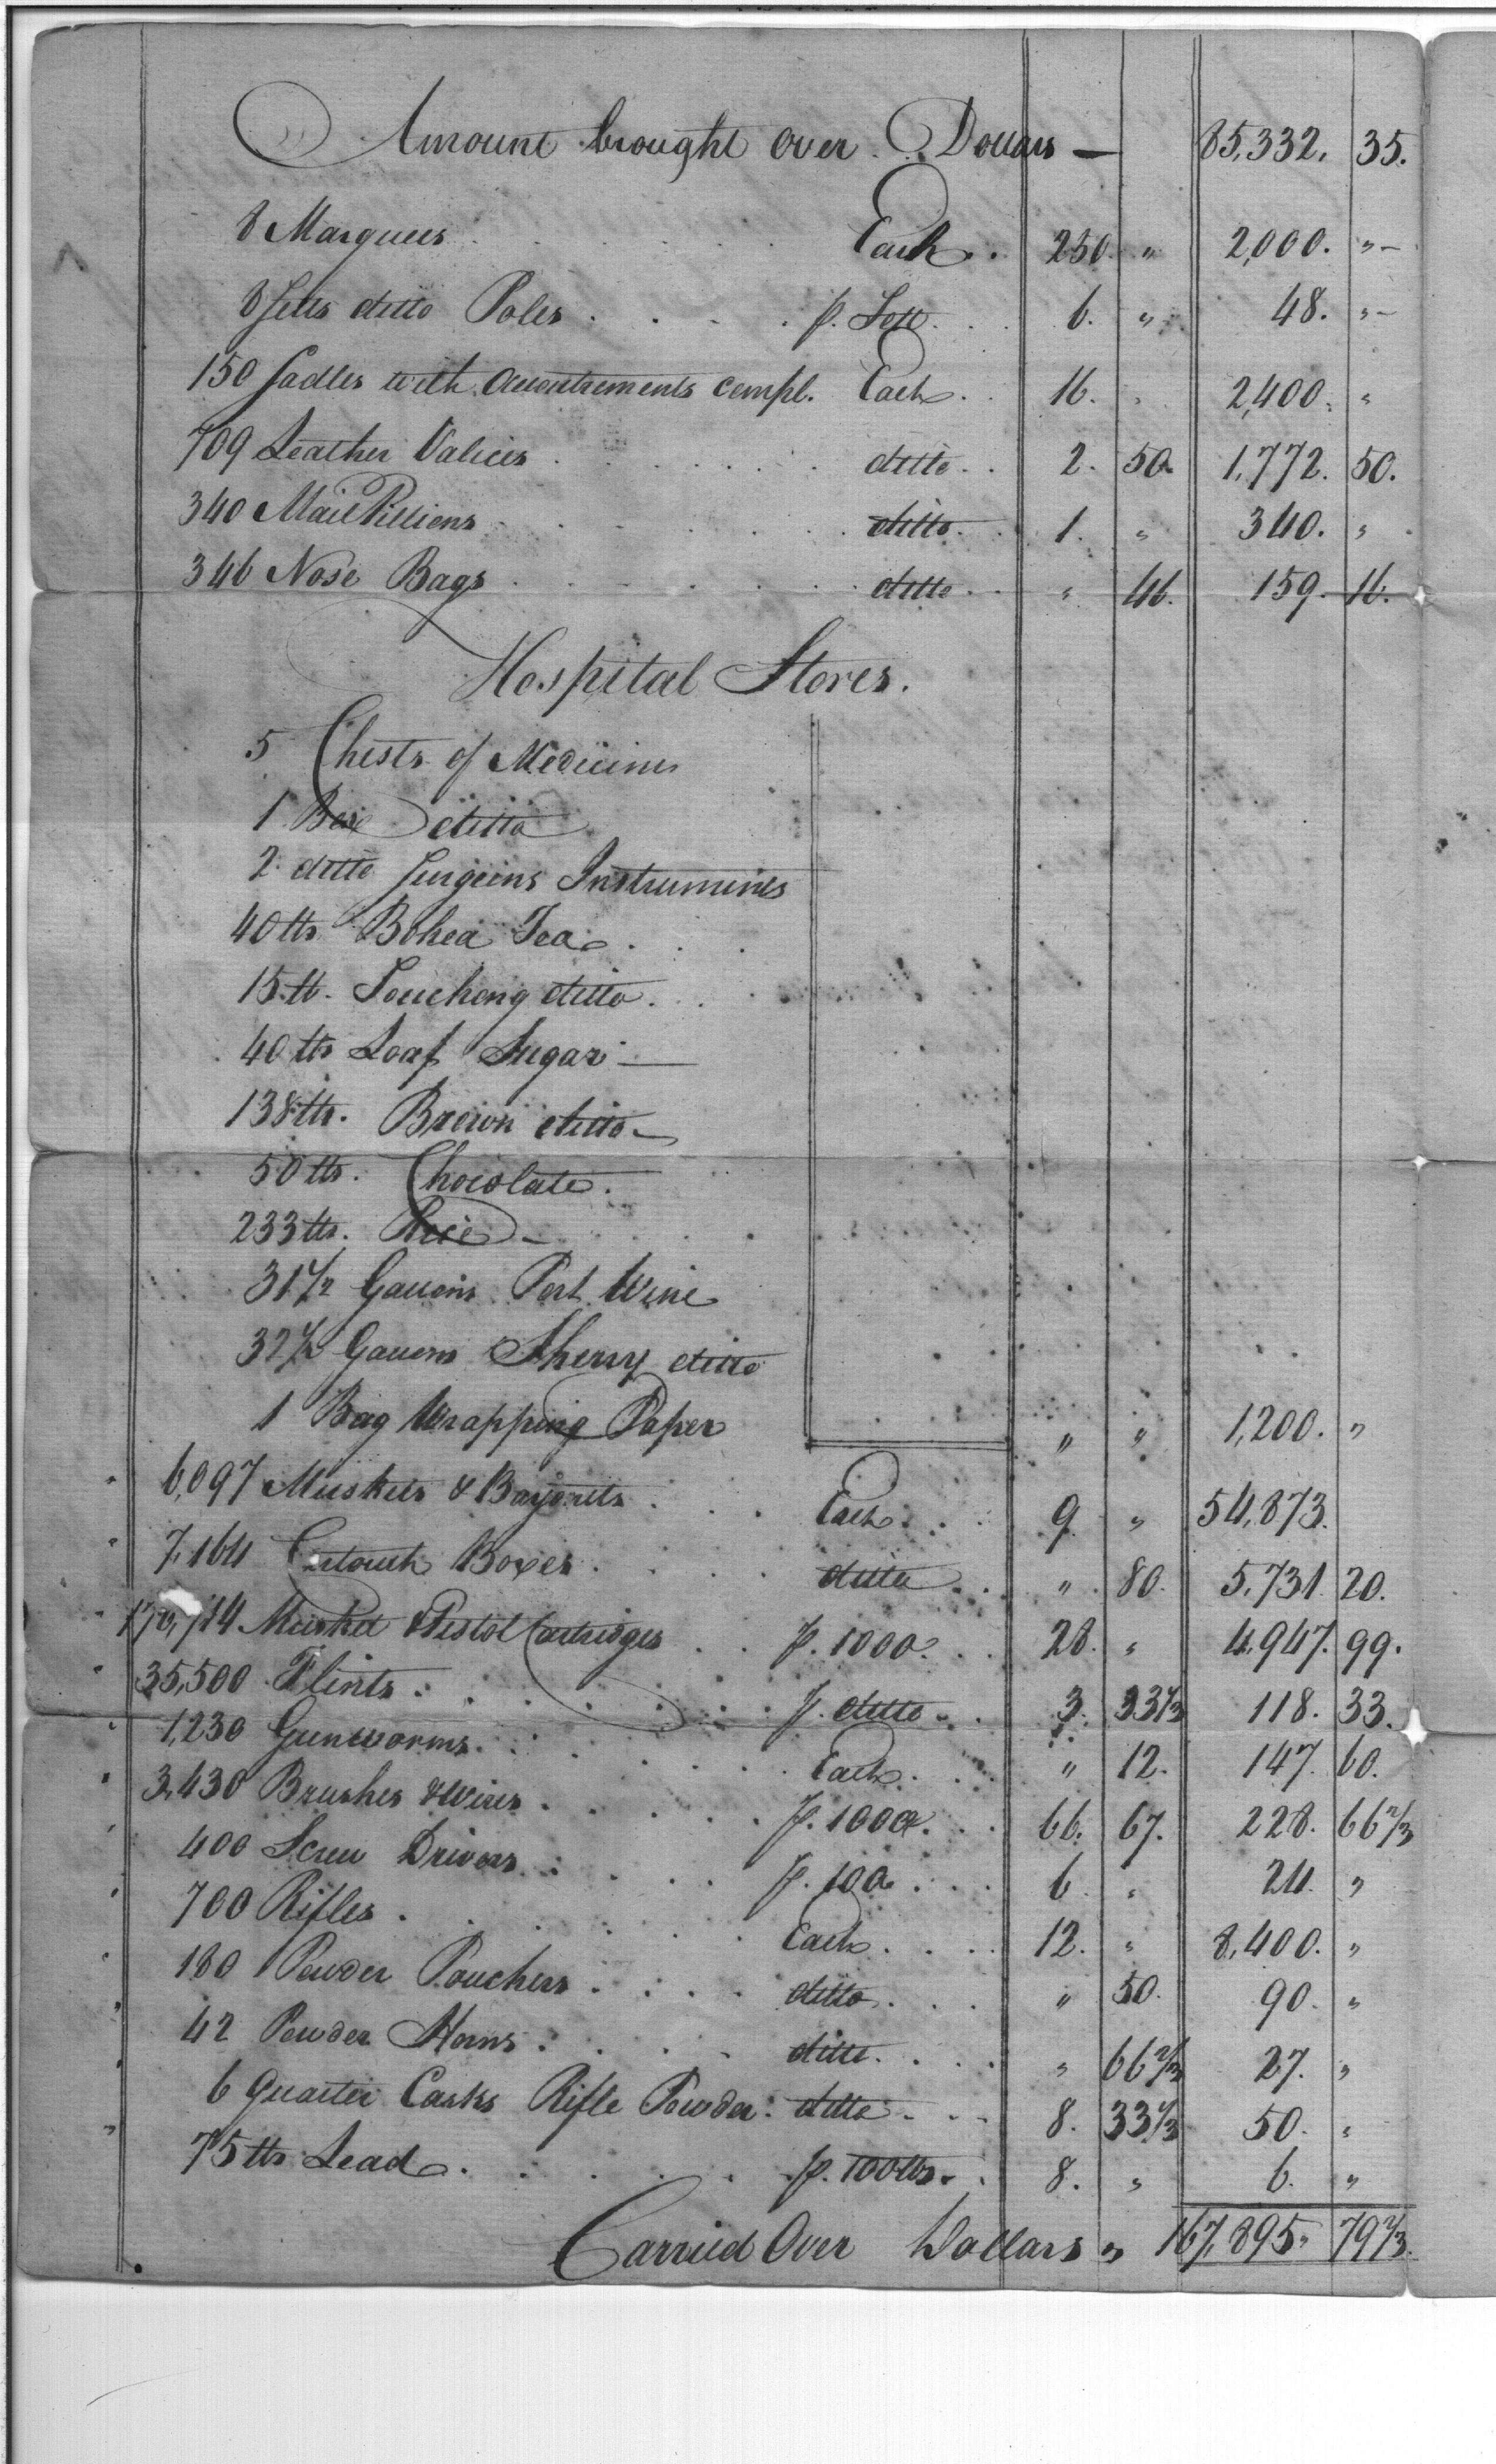 Amount brought over. Dollars — 85,332. 35.
8 Marquees . . . . . Each . 250. " 2,000. "-
8 Setts ditto Poles . . . . p. Sett . . 6. " 48. "-
150 Sadles with Accoutrements compl. Each . . 16. " 2,400. "
709 Leather Valices . . . . . . ditto . . 2. 50. 1,772. 50.
340 Mail Pillions . . . . . ditto . . 1. " 340. "
346 Nose Bags . . . . . ditto . . " 46. 159. 16.
Hospital Stores.
5 Chests of Medicines
1 Box ditto
2 ditto Surgeons Instruments
40 lbs Bohea Tea . . .
15 lb. Soucheng ditto . . .
40 lbs Loaf Sugar —
138 lbs. Brown ditto —
50 lbs. Chocolate.
233 lbs. Rice —
31 1/2 Gallons Port Wine
32 1/2 Gallons Sherry ditto
1 Bag Wrapping Paper " " 1,200. "
6,097 Muskets & Bayonets . . . Each . . . 9. " 54,873.
7,164 Cartouch Boxes . . . . ditto . . . " 80. 5,731. 20.
176,714 Musket & Pistol Cartridges . . p. 1000. . . 28. " 4,947. 99.
35,500 Flints . . . . . . p. ditto . . 3. 33 1/3 118. 33.
1,230 Gunworms . . . . . . Each . . . " 12. 147. 60.
3,430 Brushes & Wires . . . . . p. 1000. . . 66. 67. 228. 66 2/3
400 Screw Drivers . . . . p. 100 . . . 6. " 24. "
700 Rifles . . . . . . Each . . . . 12. " 8,400. "
180 Powder Pouches . . . . ditto . . . " 50. 90. "
42 Powder Horns . . . . ditto . . . . " 66 2/3 27. "
6 Quarter Casks Rifle Powder . ditto . . . 8. 33 1/3 50. "
75 lbs Lead . . . . . . p. 100 lbs. . 8. " 6. "
Carried Over Dollars " 167,895. 79 2/3.